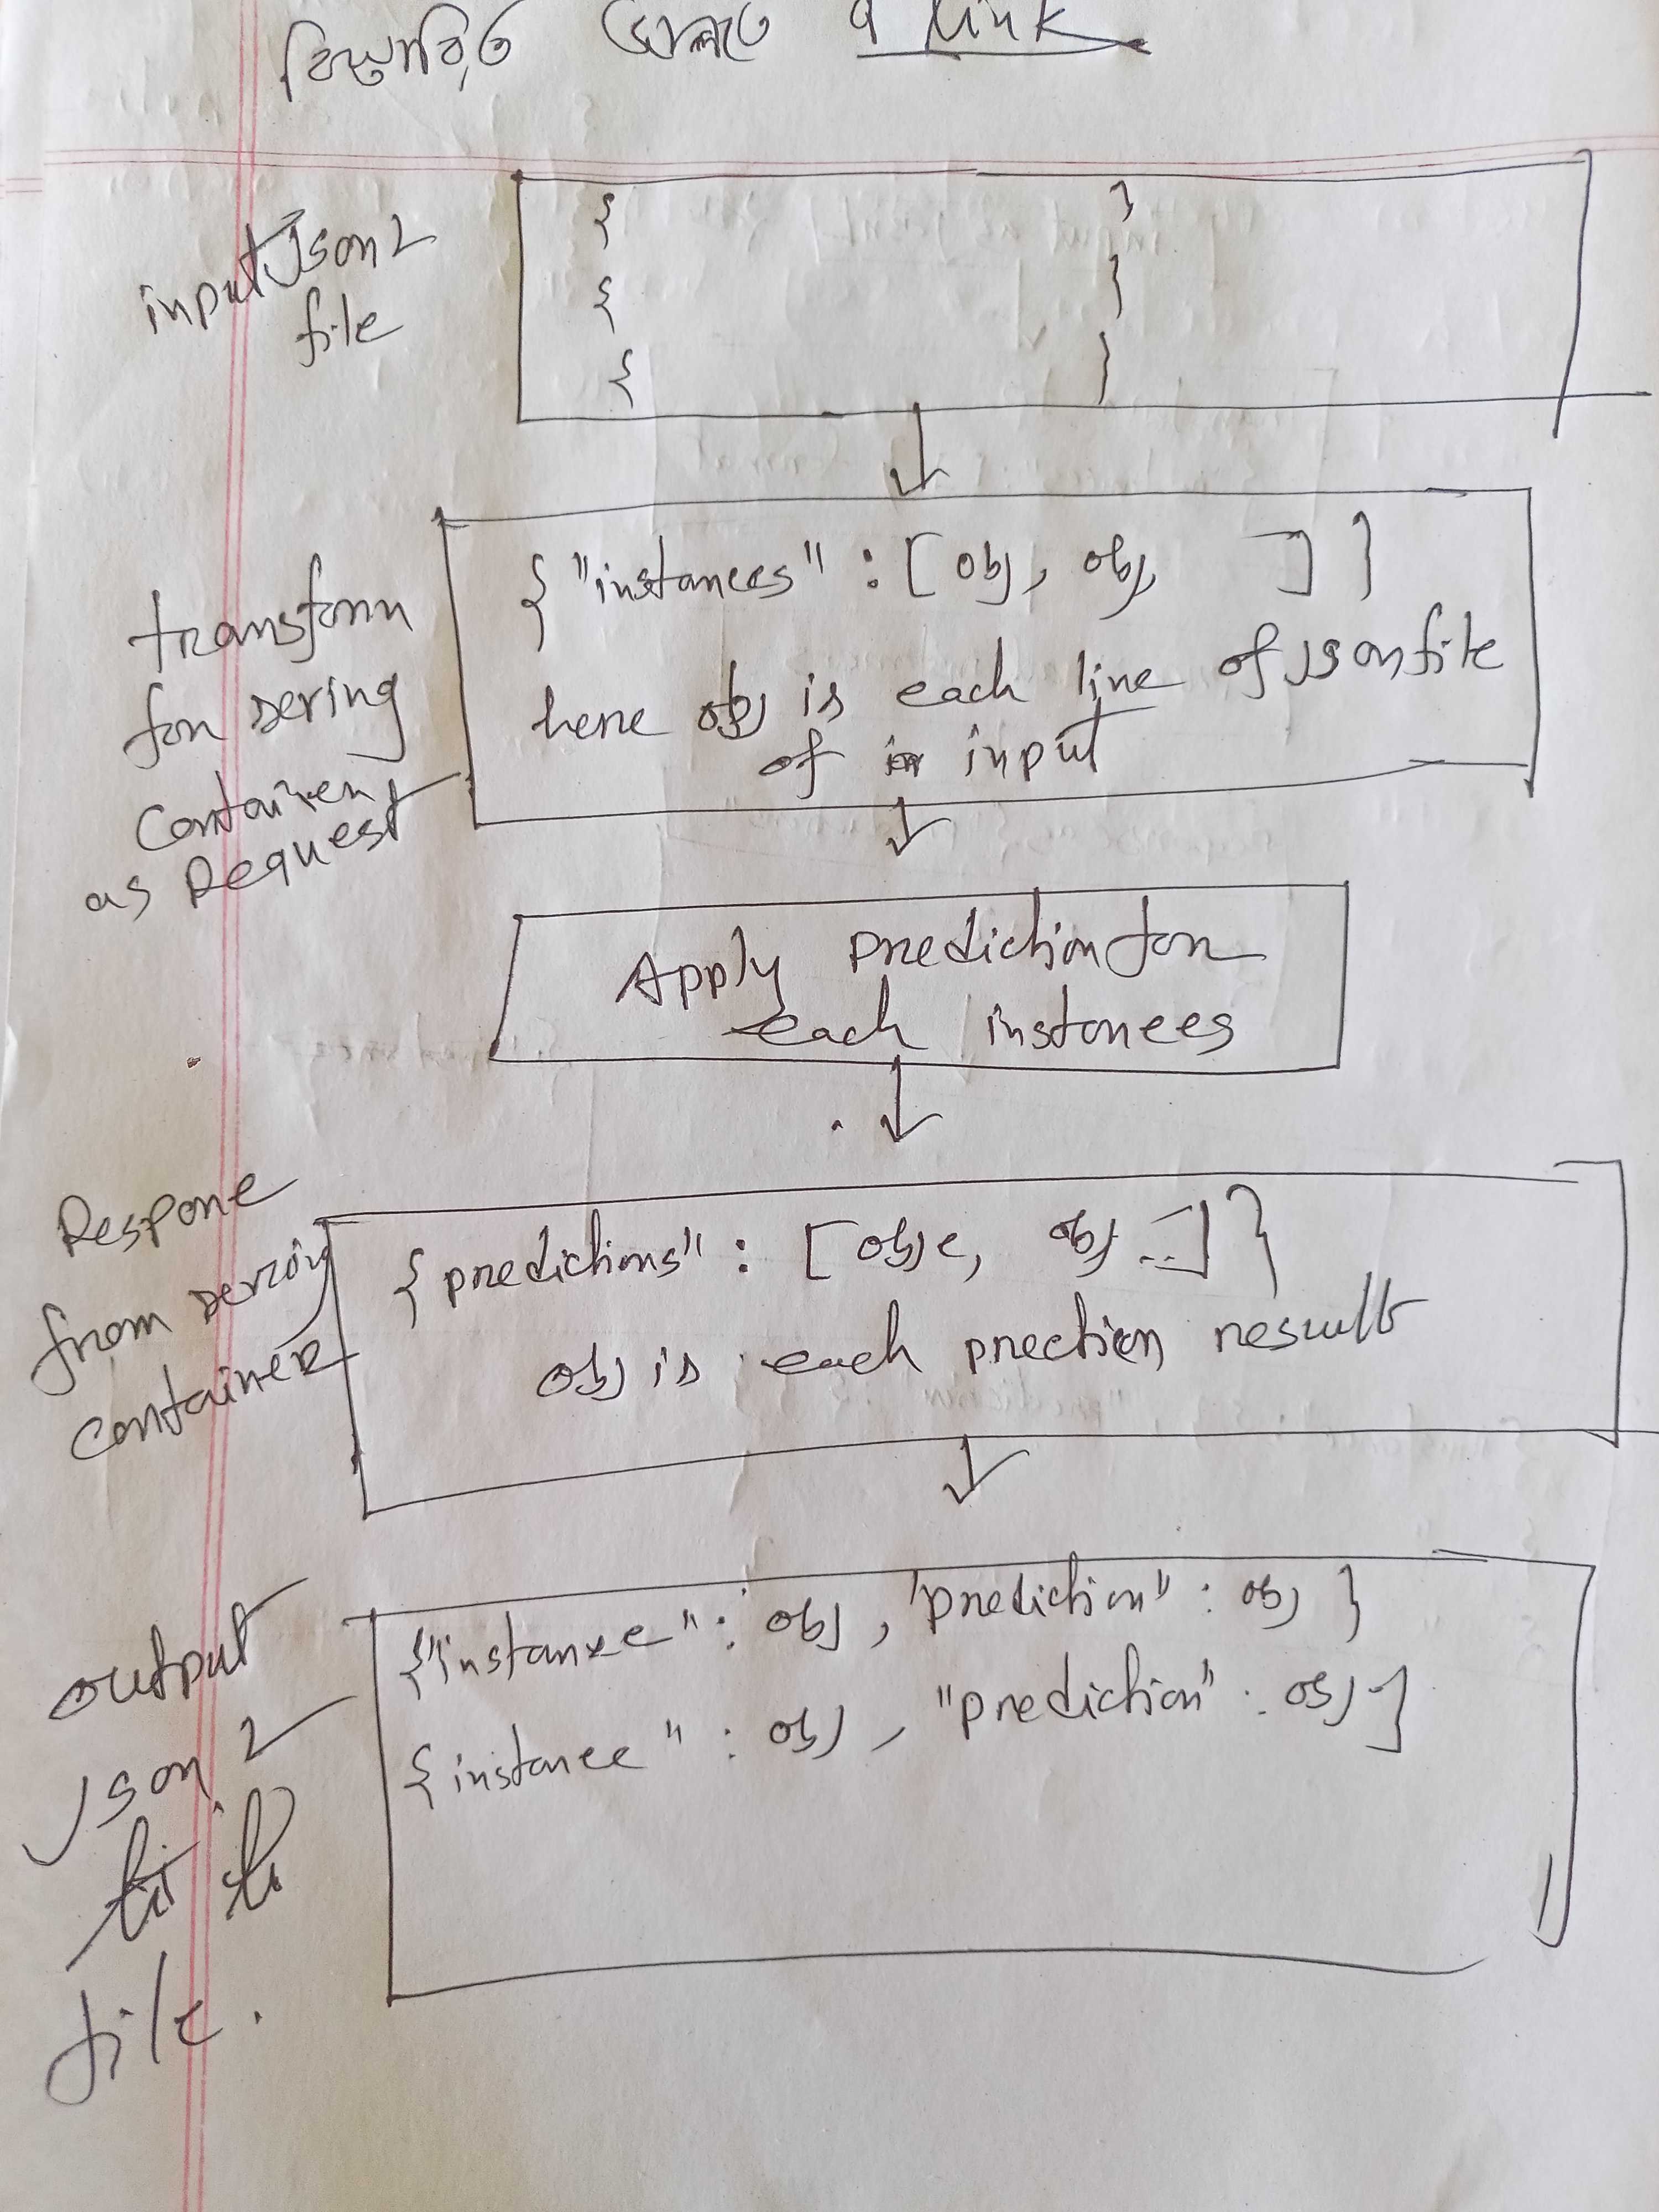 বিস্তারিত জানতে এ Link
input Json2
file
{ }
{ }
{ }
transform
for sering
Container
as Request
{ "instances" : [ obj, obj, ] }
here obj is each line of jsonfile
of input
Apply prediction for
each instances
Respone
from
container
{ predictions" : [ obje, obj ..] }
obj is each prection result
output
Json 2
file.
{"instance" : obj , "prediction" : obj }
{ instance " : obj , "prediction" : obj }